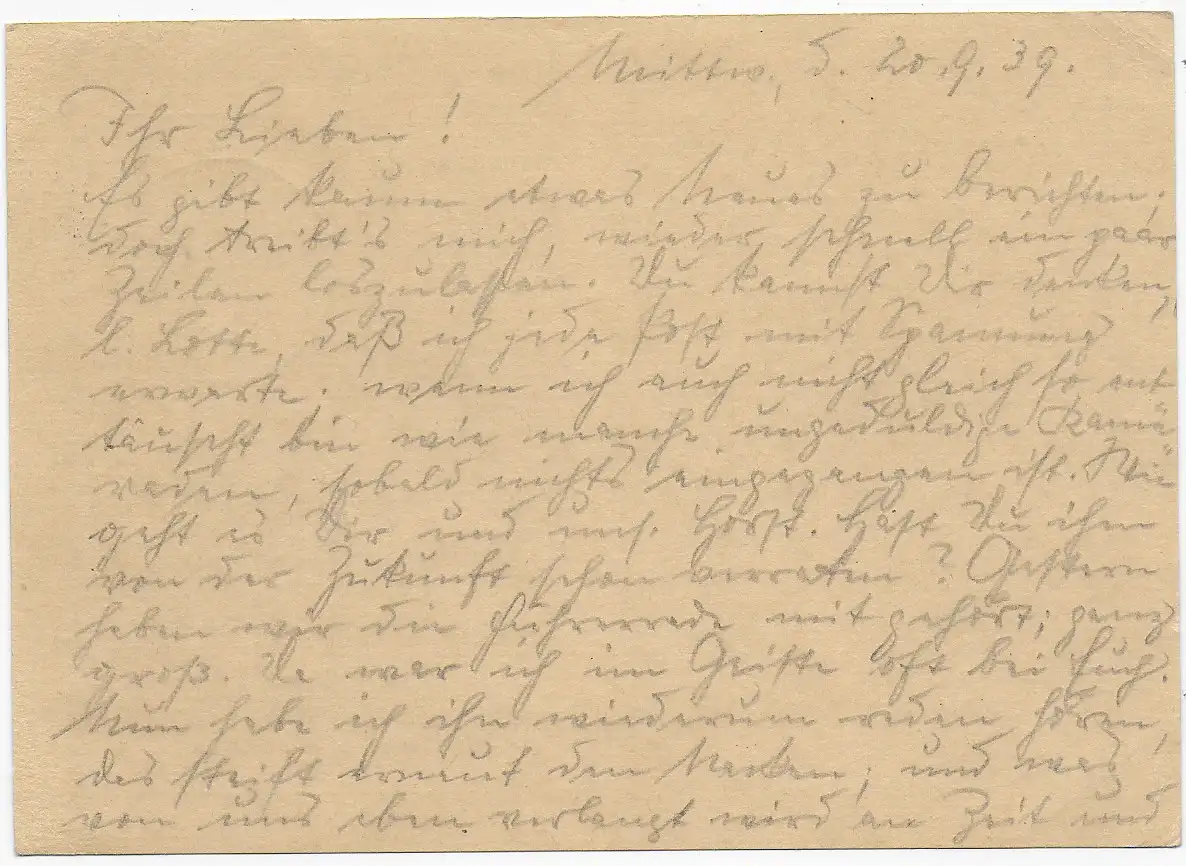 Mittw, d. 20.9.39.
Ihr Lieben!
Es gibt kaum etwas Neues zu berichten;
doch treibt's mich, wieder schnell ein paar
Zeilen loszulassen. Du kannst Dir denken,
l. Lotte, daß ich jede Post mit Spannung
erwarte; wenn ich auch nicht gleich so ent
täuscht bin wie manche ungeduldige Kame
raden, sobald nichts eingegangen ist. Wie
geht es Dir und uns. Horst. Hast Du ihm
von der Zukunft schon verraten? Gestern
haben wir die Führerrede mit gehört; ganz
groß. Da war ich im Geiste oft bei Euch.
Nun habe ich ihn wiederum reden hören,
das steift erneut den Nacken; und was
von uns eben verlangt wird an Zeit und